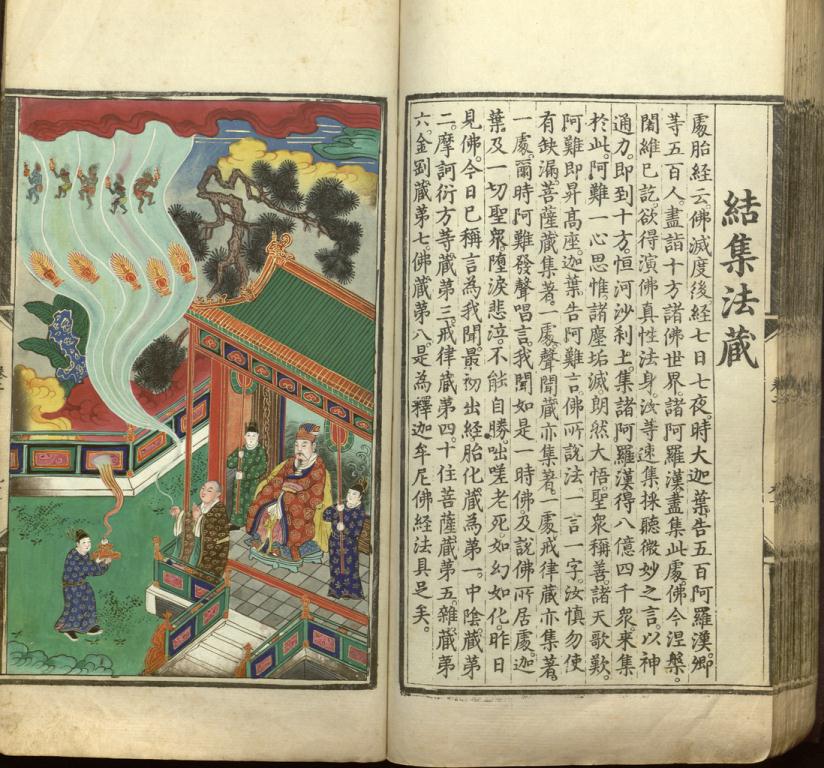 結集法藏
處胎經云。佛滅度後經七日七夜。時大迦葉告五百阿羅漢。卿
等五百人。盡詣十方諸佛世界。諸阿羅漢盡集此處。佛今涅槃。
闍維已訖。欲得演佛真性法身。汝等速集採聽微妙之言。以神
通力。即到十方。恒河沙刹土。集諸阿羅漢。得八億四千衆。來集
於此。阿難一心思惟。諸塵垢滅。朗然大悟。聖衆稱善。諸天歌歎。
阿難即昇高座。迦葉告阿難言。佛所說法。一言一字。汝慎勿使
有缺漏。菩薩藏集著一處。聲聞藏亦集著一處。戒律藏亦集著
一處。爾時阿難發聲唱言。我聞如是一時。佛及說佛所居處。迦
葉及一切聖衆。墮淚悲泣。不能自勝。咄嗟老死。如幻如化。昨日
見佛。今日已稱言為我聞。最初出經。胎化藏為第一。中陰藏第
二。摩訶衍方等藏第三。戒律藏第四。十住菩薩藏第五。雜藏第
六。金剛藏第七。佛藏第八。是為釋迦牟尼佛經法具足矣。